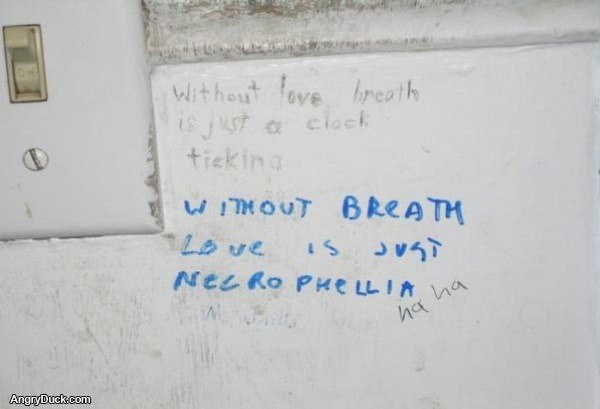 ON
Without love breath
is just a clock
ticking
WITHOUT BREATH
LOVE IS JUST
NECROPHELLIA
ha ha
AngryDuck.com